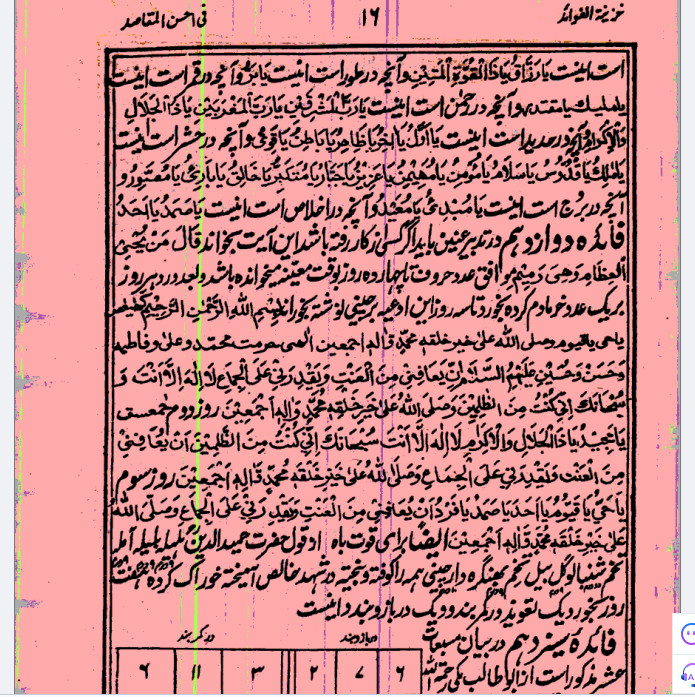 خزینة الفوائد ۱۶ فی احسن المقاصد
است اینست یَا رَزَّاقُ یَا ذَا الْقُوَّةِ الْمَتِیْنِ و آنچه در طور است اینست یَا بَرُّ و آنچه در قمر است اینست
یا ملیک یا مقتدر و آنچه در رحمٰن است اینست یَا رَبَّ الْمَشْرِقَیْنِ یَا رَبَّ الْمَغْرِبَیْنِ یَا ذَا الْجَلَالِ
وَالْاِکْرَامِ و آنچه در حدید است اینست یَا اَوَّلُ یَا اٰخِرُ یَا ظَاهِرُ یَا بَاطِنُ یَا قَوِیُّ و آنچه در حشر است اینست
یَا مَلِكُ یَا قُدُّوْسُ یَا سَلَامُ یَا مُؤْمِنُ یَا مُهَیْمِنُ یَا عَزِیْزُ یَا جَبَّارُ یَا مُتَکَبِّرُ یَا خَالِقُ یَا بَارِئُ یَا مُصَوِّرُ و
آنچه در بروج است اینست یَا مُبْدِئُ یَا مُعِیْدُ و آنچه در اخلاص است اینست یَا صَمَدُ یَا اَحَدُ
فائده دوازدهم در تدبیر عنین باید اگر کسی از کار رفته باشد این آیت بخواند قَالَ مَنْ یُّحْیِی
الْعِظَامَ وَهِیَ رَمِیْمٌ موافق عدد حروف تا چهارده روز بوقت معینه میخوانده باشد و بعد در هر روز
بر یک عدد خرما دم کرده بخورد تا سه روز این ادعیه بر چینی نوشته بخوراند بِسْمِ اللهِ الرَّحْمٰنِ الرَّحِیْمِ کهیعص
یا حی یا قیوم و صلی الله علی خیر خلقه محمد و اله اجمعین الهی بحرمت محمد و علی و فاطمه
وَحَسَن وَحُسَیْن عَلَیْهِمُ السَّلَام اَنْ یُعَافِیَنِی مِنَ الْعَنَتِ وَیَقْدِرَنِی عَلَی الْجِمَاعِ لَا اِلٰهَ اِلَّا اَنْتَ
سُبْحَانَكَ اِنِّی کُنْتُ مِنَ الظّٰلِمِیْنَ وَصَلَّی اللهُ عَلٰی خَیْرِ خَلْقِهٖ مُحَمَّدٍ وَّاٰلِهٖ اَجْمَعِیْنَ روز دوم حمعسق
یَا مَجِیْدُ یَا ذَا الْجَلَالِ وَالْاِکْرَامِ لَا اِلٰهَ اِلَّا اَنْتَ سُبْحَانَكَ اِنِّی کُنْتُ مِنَ الظّٰلِمِیْنَ اَنْ یُعَافِیَنِیْ
مِنَ الْعَنَتِ وَیَقْدِرَنِی عَلَی الْجِمَاعِ وَصَلَّی اللهُ عَلٰی خَیْرِ خَلْقِهٖ مُحَمَّدٍ وَّاٰلِهٖ اَجْمَعِیْنَ روز سوم
یَا حَیُّ یَا قَیُّوْمُ یَا اَحَدُ یَا صَمَدُ یَا فَرْدُ اَنْ یُعَافِیَنِی مِنَ الْعَنَتِ وَیَقْدِرَنِی عَلَی الْجِمَاعِ وَصَلَّی اللهُ
عَلٰی خَیْرِ خَلْقِهٖ مُحَمَّدٍ وَّاٰلِهٖ اَجْمَعِیْنَ ایضًا برای قوت باه از قول حضرت حمید الدین هلیله بلیله آمله
تخم بیل تخم بهنگره دارچینی همه را کوفته و بیخته در شهد خالص آمیخته خوراک کرده هفت
روز بخورد یک تعویذ در کمر بندد و یک در بازو بندد اینست
فائده سیزدهم در بیان مسبعات
عشر مذکور است از ابو طالب مکی رحمة الله
در بازو بندد در کمر بندد
۶ ۷ ۲ ۳ ۱۱ ۶